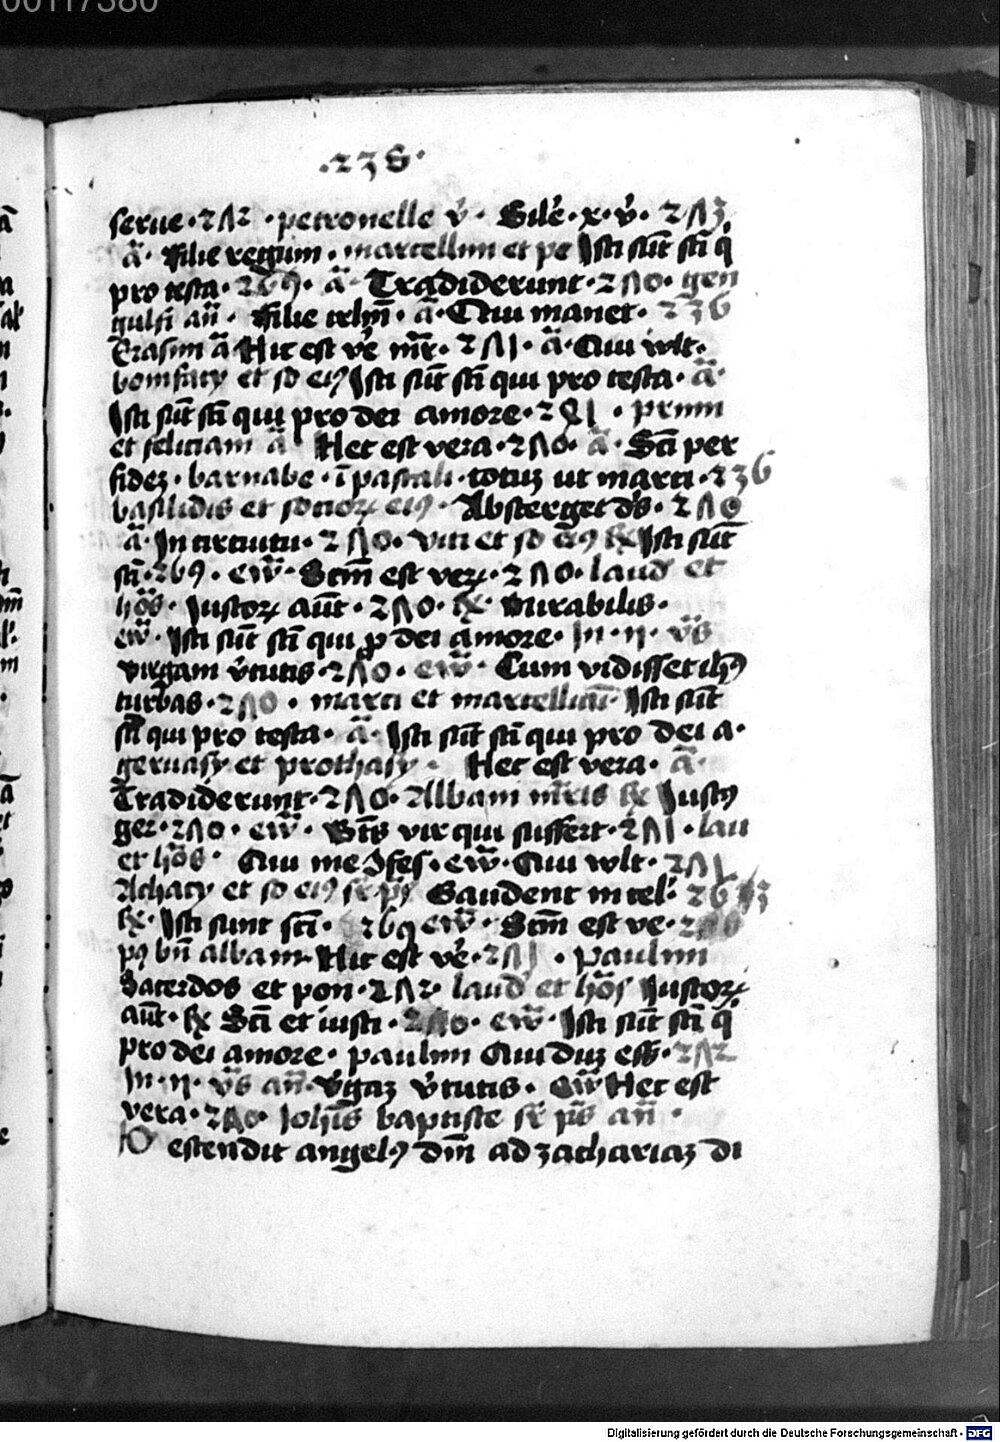 00117380
·238·
serue · 2Λ2 · petronelle v̄ · Sile · x · v̄ · 2Λ3
ā · filie regum · marcellini et pe Isti sūt sti q̄
pro testa · 269 · ā · Tradiderunt · 2Λ0 · gen
gulfi an̄ · filie irlm̄ · ā · Qui manet · 236
Erasmi ā Hic est ve mr̄ · 2Λ1 · ā · Qui vult ·
bonifacy et so eiꝰ Isti sūt sti qui pro testa · ā ·
Isti sūt sti qui pro dei amore · 281 · primi
et feliciani ā Hec est vera · 2Λ0 · ā · Sc̄i per
fidez · barnabe · ī pascali · totuz ut marci · 236
basilidis et socioꝝ eiꝰ · Absterget ds̄ · 2Λ0
ā · In circuitu · 2Λ0 · viti et so eiꝰ Isti sūt
sti · 269 · ew̄ · Stm̄ est veꝝ · 2Λ0 · laud et
hōs · Iustoꝝ aūt · 2Λ0 · Mirabilis ·
ew̄ · Isti sūt sti qui ꝓ dei amore · In · ii · v̄s
virgam v̄tutis · 2Λ0 · ew̄ · Cum vidisset ihꝰ
turbas · 2Λ0 · marci et marcelliani · Isti sūt
sti qui pro testa · ā · Isti sūt sti qui pro dei a ·
geruasy et prothasy · Hec est vera · ā ·
Tradiderunt · 2Λ0 · Albani mr̄is Iusty
ger · 2Λ0 · ew̄ · Bt̄s vir qui suffert · 2Λ1 · lau
et hōs · Qui me ɔfes · ew̄ · Qui vult · 2Λ1
Achacy et so eiꝰ Gaudent in cel · 263
Isti sunt sc̄i · 269 ew̄ · Stm̄ est ve ·
pꝰ bn̄ albani · Hic est ve · 2Λ1 · paulini
Sacerdos et pon · 2Λ2 · laud et hōs Iustoꝝ
aūt · Sc̄i et iusti · 2Λ0 · ew̄ · Isti sūt sti q̄
pro dei amore · paulini Qui duz ess · 2Λ2
In · ii · v̄s an̄ · v̄gaz v̄tutis · ew̄ Hec est
vera · 2Λ0 · Iohīs baptiste an̄ ·
estendit angelꝰ dm̄ ad zachariaz di
Digitalisierung gefördert durch die Deutsche Forschungsgemeinschaft - DFG